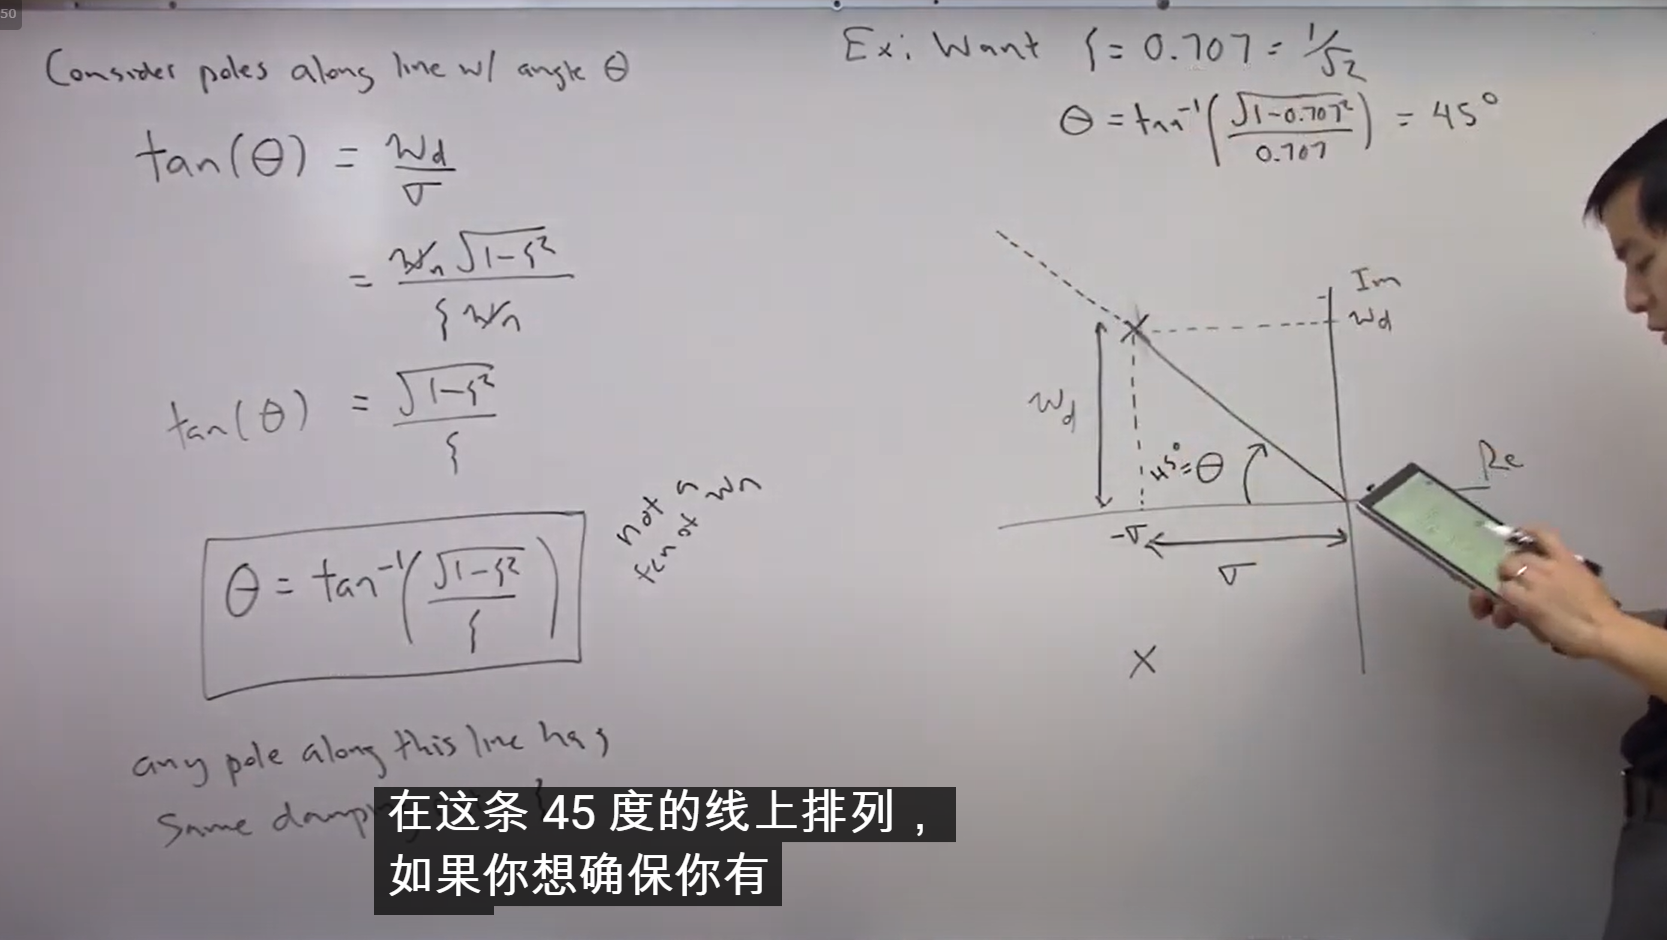 50
Consider poles along line w/ angle θ
tan(θ) = ωd/σ
= ωn √1-ζ² / ζ ωn
tan(θ) = √1-ζ² / ζ
θ = tan⁻¹(√1-ζ² / ζ)
not a
fcn of ωn
any pole along this line has
same damp
Ex: Want ζ = 0.707 = 1/√2
θ = tan⁻¹(√1-0.707² / 0.707) = 45°
Im
ωd
ωd
45° = θ
Re
-σ
σ
在这条 45 度的线上排列，
如果你想确保你有